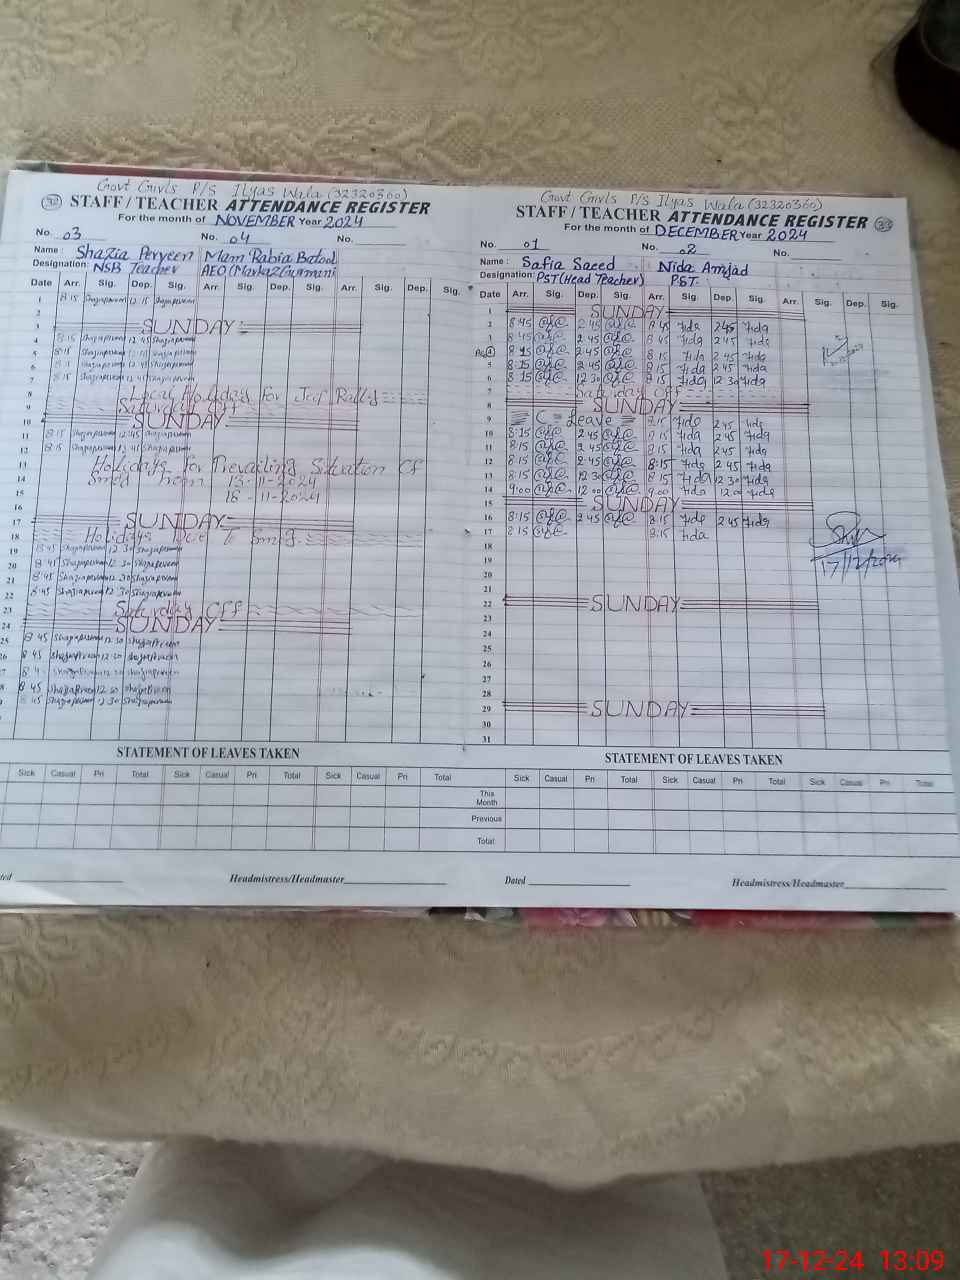 Govt Girls P/S Ilyas Wala (32320360)
32 STAFF/TEACHER ATTENDANCE REGISTER
For the month of NOVEMBER Year 2024
No. 03 No. 04 No.
Name : Shazia Perveen Mam Rabia Batool
Designation: NSB Teacher AEO (Markaz Gurmani
Date Arr. Sig. Dep. Sig. Arr. Sig. Dep. Sig. Arr. Sig. Dep. Sig.
1 8 15 Shaziaperveen 12 15 Shaziaperveen
2
3 SUNDAY
4 8:15 Shaziaperveen 12 45 Shaziaperveen
5 8:15 Shaziaperveen Shaziaperveen
6 Shaziaperveen 12 45 Shaziaperveen
7 8:15 Shaziaperveen 12 45 Shaziaperveen
8 Local Holidays For
9 Saturday Off
10 SUNDAY
11 8 15 Shaziaperveen 12:45 Shaziaperveen
12 8 15 Shaziaperveen 12 45 Shaziaperveen
13 Holidays For Prevailing Situation Of
14 Smog From 13-11-2024
15 16-11-2024
16
17 SUNDAY
18 Holidays Due To Smog
19 8:45 Shaziaperveen 12 30 Shaziaperveen
20 8:45 Shaziaperveen 12 30 Shaziaperveen
21 8:45 Shaziaperveen 12 30 Shaziaperveen
22 8:45 Shaziaperveen 12 30 Shaziaperveen
23 Saturday Off
24 SUNDAY
25 8 45 Shaziaperveen 12 30 Shaziaperveen
26 8 45 Shaziaperveen 12 30 Shaziaperveen
Shaziaperveen 12 30 Shaziaperveen
8 45 Shaziaperveen 12 30 Shaziaperveen
8 45 Shaziaperveen 12 30 Shaziaperveen
STATEMENT OF LEAVES TAKEN
Sick Casual Pri Total Sick Casual Pri Total Sick Casual Pri Total
Headmistress/Headmaster
Govt Girls P/S Ilyas Wala (32320360)
STAFF/TEACHER ATTENDANCE REGISTER 33
For the month of DECEMBER Year 2024
No. 01 No. 02 No.
Name : Safia Saeed Nida Amjad
Designation: PST(Head Teacher) PST.
Date Arr. Sig. Dep. Sig. Arr. Sig. Dep. Sig. Arr. Sig. Dep. Sig.
1 SUNDAY
2 8 45 2 45 8 45 Nida 2 45 Nida
3 8:45 2:45 8 45 Nida 2 45 Nida
4 8 15 2:45 8 15 Nida 2 45 Nida
5 8:15 2:45 8 15 Nida 2 45 Nida
6 8:15 12 30 8 15 Nida 12 30 Nida
7 Saturday Off
8 SUNDAY
9 C Leave 8 15 Nida 2 45 Nida
10 8:15 2 45 8 15 Nida 2 45 Nida
11 8:15 2:45 8:15 Nida 2 45 Nida
12 8:15 2:45 8:15 Nida 2 45 Nida
13 8:15 12 30 8 15 Nida 12 30 Nida
14 9:00 12 00 9:00 Nida 12 00 Nida
15 SUNDAY
16 8:15 2 45 8:15 Nida 2 45 Nida
17 8 15 8:15 Nida
17/12/2024
18
19
20
21
22 SUNDAY
23
24
25
26
27
28
29 SUNDAY
30
31
STATEMENT OF LEAVES TAKEN
Sick Casual Pri Total Sick Casual Pri Total Sick Casual Pri Total
This Month
Previous
Total
Dated Headmistress/Headmaster
17-12-24 13:09